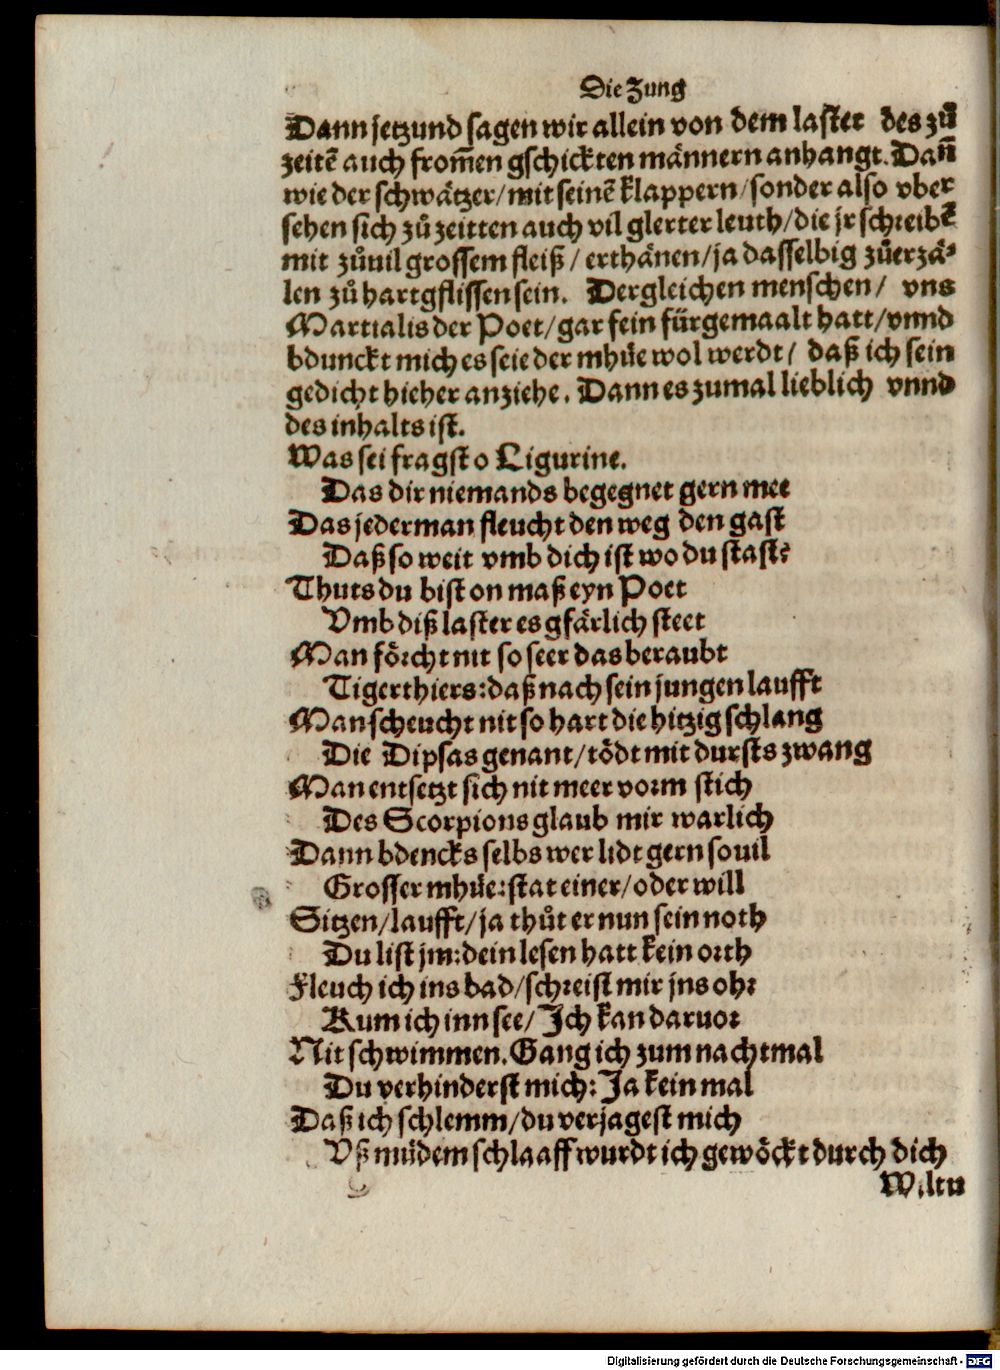 Die Zung
Dann jetzund sagen wir allein von dem laster des zů
zeitē auch from̄en gschickten männern anhangt. Dan̄
wie der schwätzer/ mit seinē klappern/ sonder also vber
sehen sich zů zeitten auch vil glerter leuth/ die jr schreibē
mit zůuil grossem fleiß/ erthänen/ ja dasselbig zůerzä⸗
len zů hartgflissen sein. Dergleichen menschen/ vns
Martialis der Poet/ gar fein fürgemaalt hatt/ vnnd
bdunckt mich es seie der mhüe wol werdt/ daß ich sein
gedicht hieher anziehe. Dann es zumal lieblich vnnd
des inhalts ist.
Was sei fragst o Ligurine.
Das dir niemands begegnet gern mee
Das jederman fleucht den weg den gast
Daß so weit vmb dich ist wo du stast?
Thuts du bist on maß eyn Poet
Vmb diß laster es gfärlich steet
Man förcht nit so seer das beraubt
Tigerthiers: daß nach sein jungen laufft
Man scheucht nit so hart die hitzig schlang
Die Dipsas genant/ tödt mit dursts zwang
Man entsetzt sich nit meer vorm stich
Des Scorpions glaub mir warlich
Dann bdencks selbs wer lidt gern souil
Grosser mhüe: stat einer/ oder will
Sitzen/ laufft/ ja thůt er nun sein noth
Du list jm: dein lesen hatt kein orth
Fleuch ich ins bad/ schreist mir jns ohr
Kum ich inn see/ Ich kan daruor
Nit schwimmen. Gang ich zum nachtmal
Du verhinderst mich: Ja kein mal
Daß ich schlemm/ du verjagest mich
Vß müdem schlaaff wurdt ich gewöckt durch dich
Wiltu
Digitalisierung gefördert durch die Deutsche Forschungsgemeinschaft - DFG